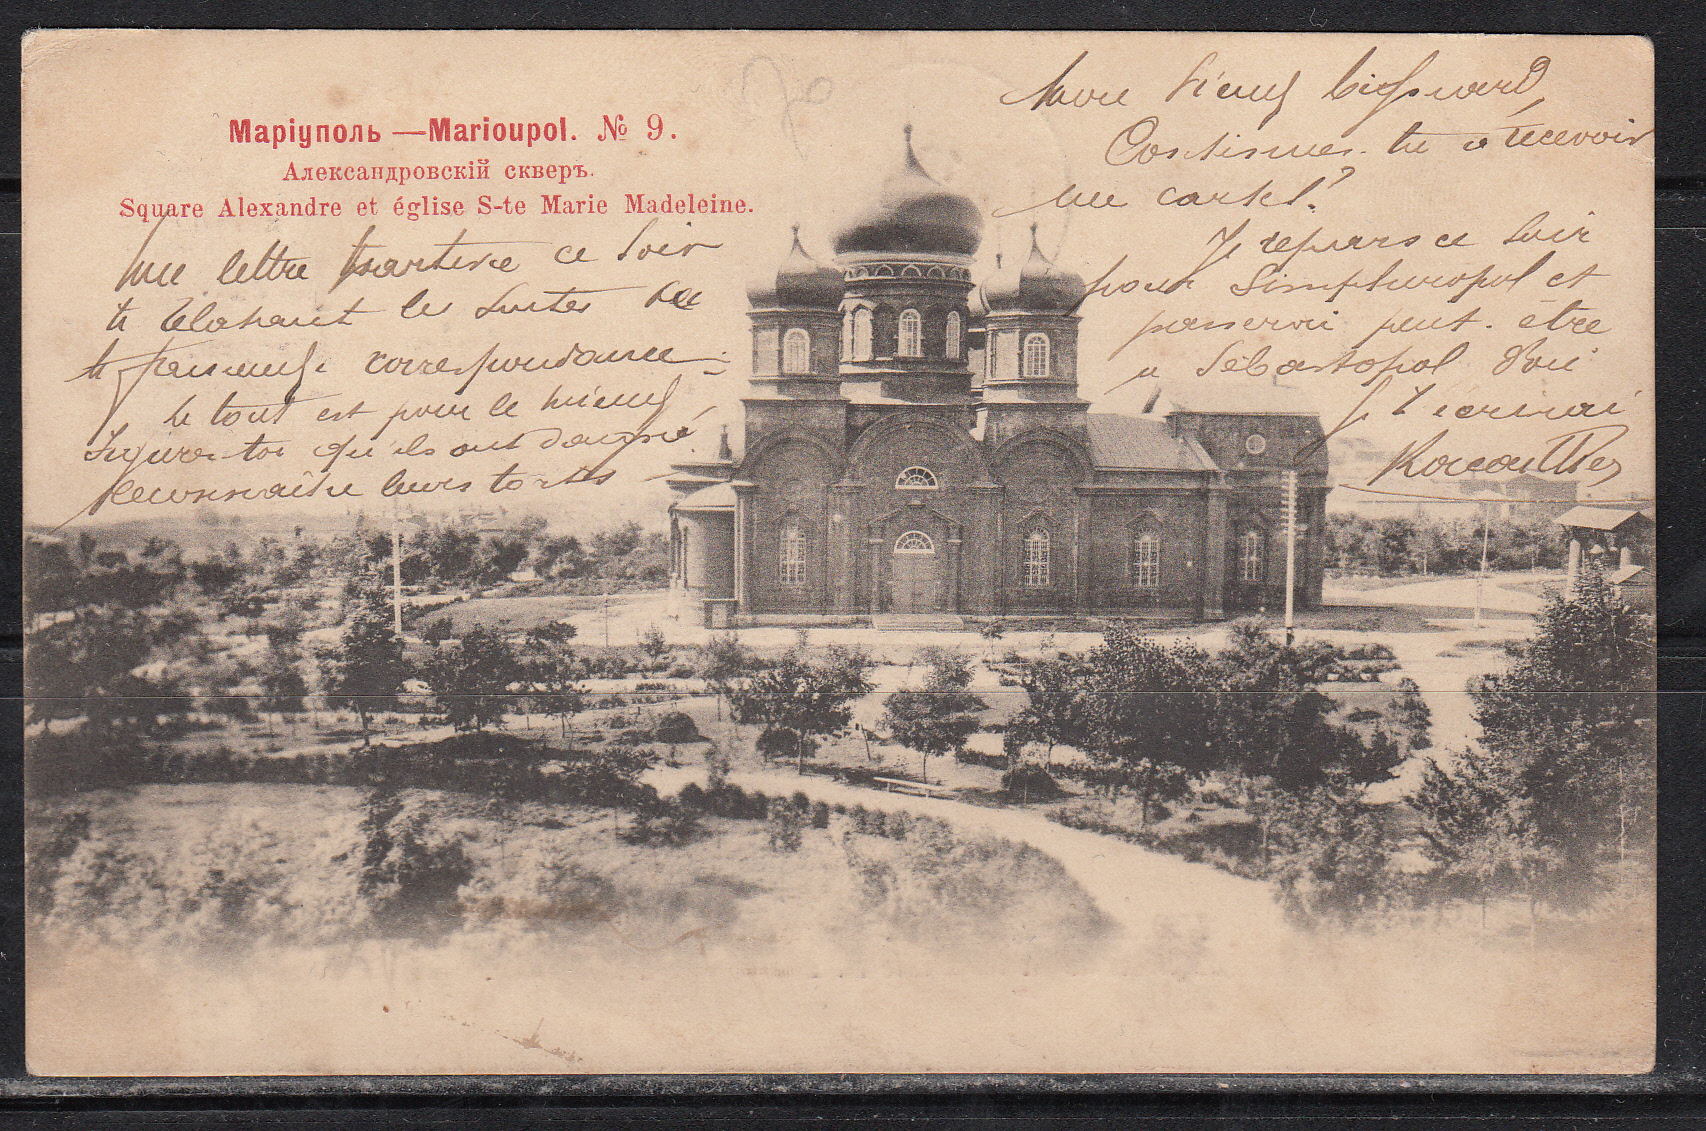 Маріуполь — Marioupol. № 9.
Александровскій скверъ.
Square Alexandre et église S-te Marie Madeleine.
Mon vieux
Continues-tu à recevoir
mes cartes?
Je repars ce soir
pour Simpheropol et
passerai peut-être
a Sébastopol d'où
je t'écrirai
Une lettre partira ce soir
te relatant les suites de
ta fameuse correspondance
Le tout est pour le mieux
figure-toi qu'ils ont daigné
reconnaître leurs torts
70